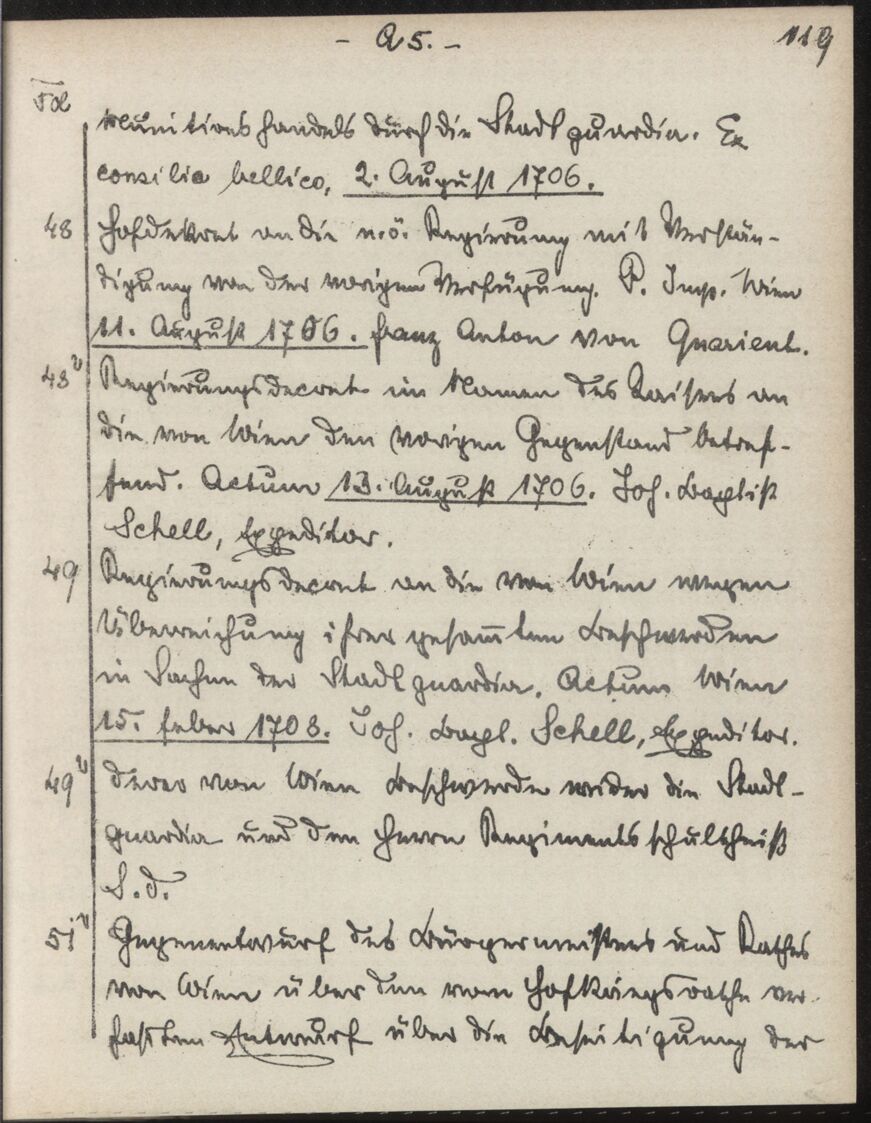 - A 5. -
119
Fol
munitionshandels durch die Stadtguardia. Ex
consilio bellico, 2. August 1706.
48 Hofdekret an die n.ö. Regierung mit Verstän-
digung von der vorigen Verfügung. P. Imp. Wien
11. August 1706. Franz Anton von Quarient.
48v Regierungsdecret im Namen des Kaisers an
die von Wien den vorigen Gegenstand betref-
fend. Actum 13. August 1706. Joh. Baptist
Schell, Expeditor.
49 Regierungsdecret an die von Wien wegen
Überreichung ihrer gesam̅ten Beschwerden
in Sachen der Stadtguardia. Actum Wien
15. Feber 1708. Joh. Bapt. Schell, Expeditor.
49v Derer von Wien Beschwerde wider die Stadt-
guardia und den Herrn Regimentsschultheiß
S.d.
51v Gegenentwurf des Bürgermeisters und Rathes
von Wien über den vom Hofkriegsrathe ver-
faßten Entwurf über die Beseitigung der